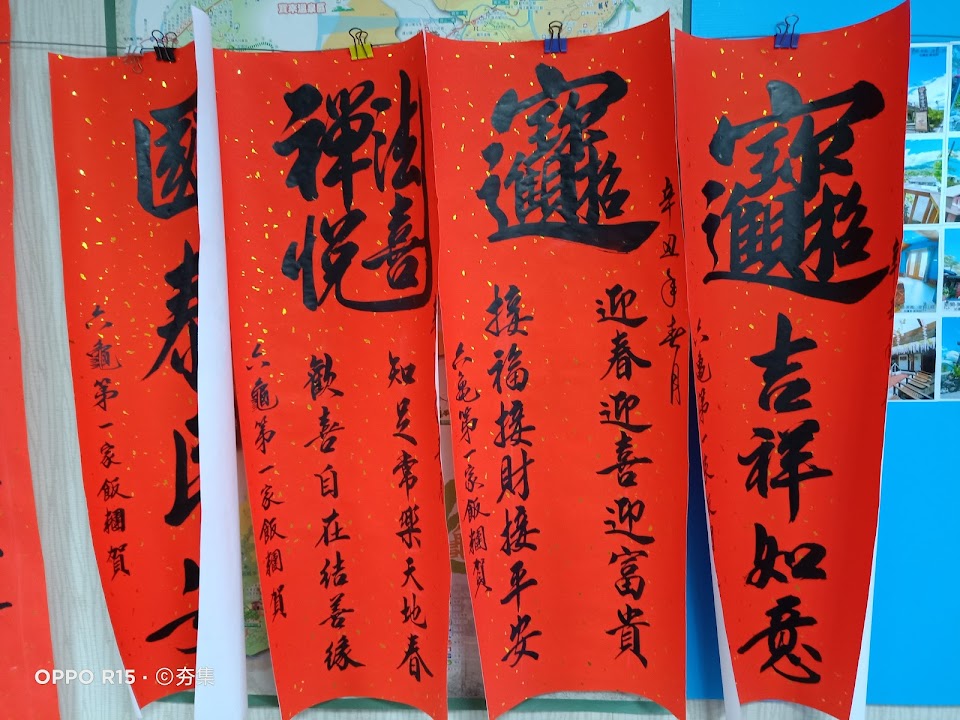 國泰民
六龜第一家飯糰賀
法喜
禪悅
知足常樂天地春
歡喜自在結善緣
六龜第一家飯糰賀
招財進寶
辛丑年春月
迎春迎喜迎富貴
接福接財接平安
六龜第一家飯糰賀
招財進寶
吉祥如意
六龜第一家
OPPO R15 · ©夯集